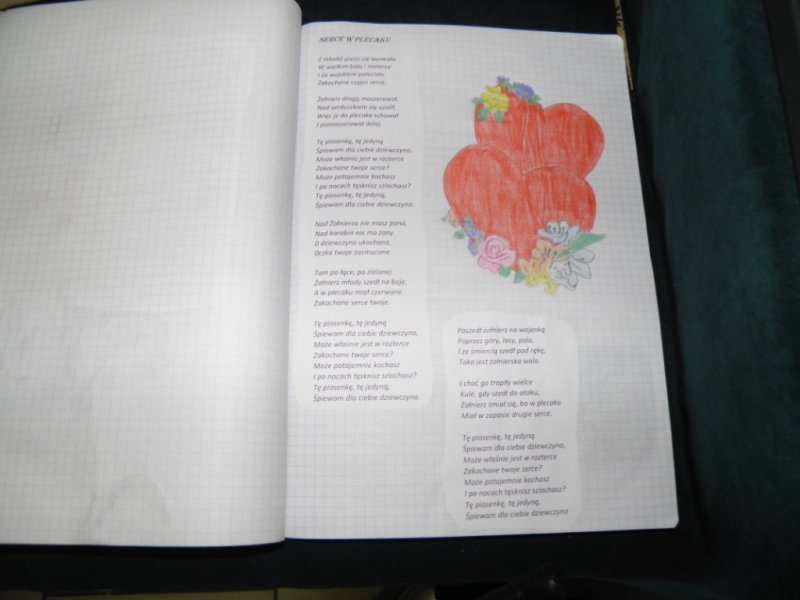 SERCE W PLECAKU
Z młodej piersi się wyrwało
W wielkim bólu i rozterce
I za wojskiem poleciało
Zakochane czyjeś serce.
Żołnierz drogą maszerował,
Nad serduszkiem się użalił,
Więc je do plecaka schował
I pomaszerował dalej.
Tę piosenkę, tę jedyną
Śpiewam dla ciebie dziewczyno,
Może właśnie jest w rozterce
Zakochane twoje serce?
Może potajemnie kochasz
I po nocach tęsknisz szlochasz?
Tę piosenkę, tę jedyną,
Śpiewam dla ciebie dziewczyno.
Nad Żołnierza nie masz pana,
Nad karabin nie ma żony.
O dziewczyno ukochana,
Oczka twoje zasmucone.
Tam po łące, po zielonej
Żołnierz młody szedł na boje,
A w plecaku miał czerwone.
Zakochane serce twoje.
Tę piosenkę, tę jedyną
Śpiewam dla ciebie dziewczyno,
Może właśnie jest w rozterce
Zakochane twoje serce?
Może potajemnie kochasz
I po nocach tęsknisz szlochasz?
Tę piosenkę, tę jedyną,
Śpiewam dla ciebie dziewczyno.
Poszedł żołnierz na wojenkę
Poprzez góry, lasy, pola,
I ze śmiercią szedł pod rękę,
Taka jest żołnierska wola.
I choć go trapiły wielce
Kule, gdy szedł do ataku,
Żołnierz śmiał się, bo w plecaku
Miał w zapasie drugie serce.
Tę piosenkę, tę jedyną
Śpiewam dla ciebie dziewczyno,
Może właśnie jest w rozterce
Zakochane twoje serce?
Może potajemnie kochasz
I po nocach tęsknisz szlochasz?
Tę piosenkę, tę jedyną,
Śpiewam dla ciebie dziewczyno